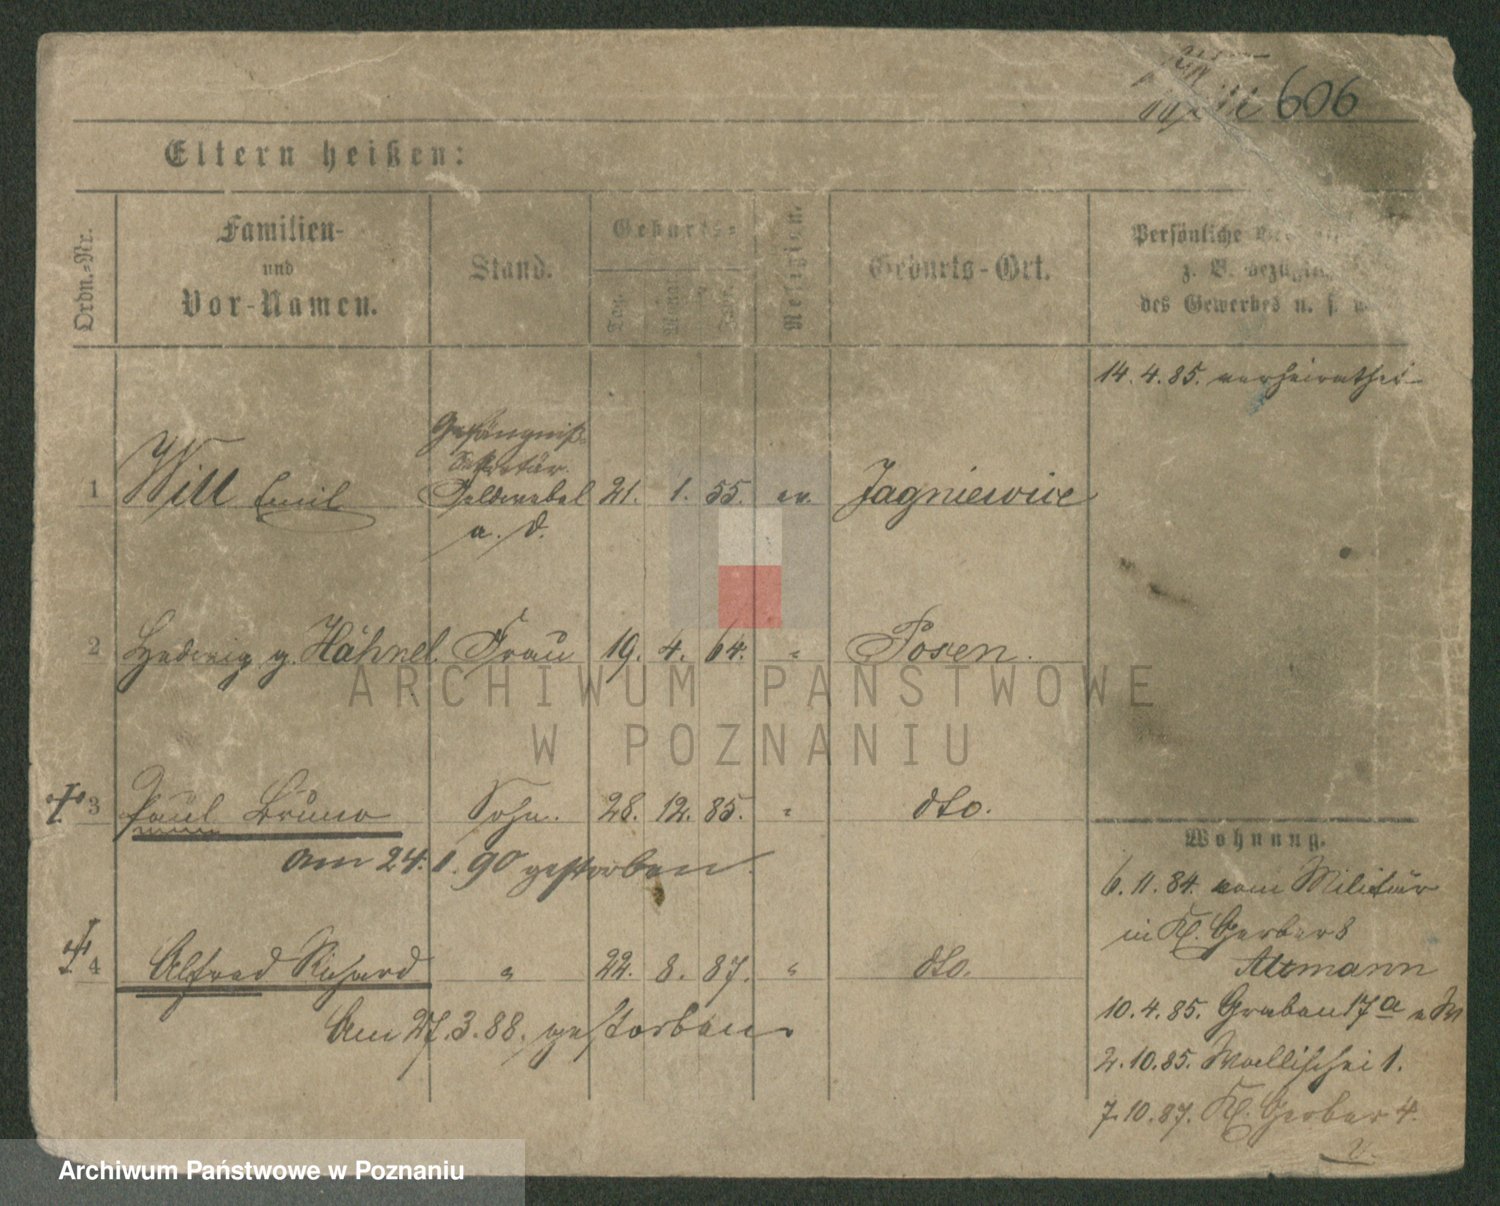 606
Eltern heißen:
Ordn.-Nr.
Familien-
und
Vor-Namen.
Stand.
Geburts-
Tag.
Religion.
Geburts-Ort.
Persönliche
z. B. bezüglich
des Gewerbes u. s. w.
14. 4. 85. verheirathet
Gefängniß-
Sekretär
1 Will Emil Feldwebel 21. 1. 55. ev. Jagniewice
a. D.
2 Hedwig g. Hähnel. Frau 19. 4. 64. " Posen.
3 Paul Bruno Sohn. 28. 12. 85. " dto.
am 24. 1. 90 gestorben.
4 Alfred Richard " 22. 8. 87. " dto.
Am 27. 3. 88. gestorben.
Wohnung.
6. 11. 84. vom Militär
in Kl. Gerber 8
Altmann
10. 4. 85. Graben 17a
2. 10. 85. Wallischei 1.
7. 10. 87. Kl. Gerber 4.
ARCHIWUM PAŃSTWOWE
W POZNANIU
Archiwum Państwowe w Poznaniu